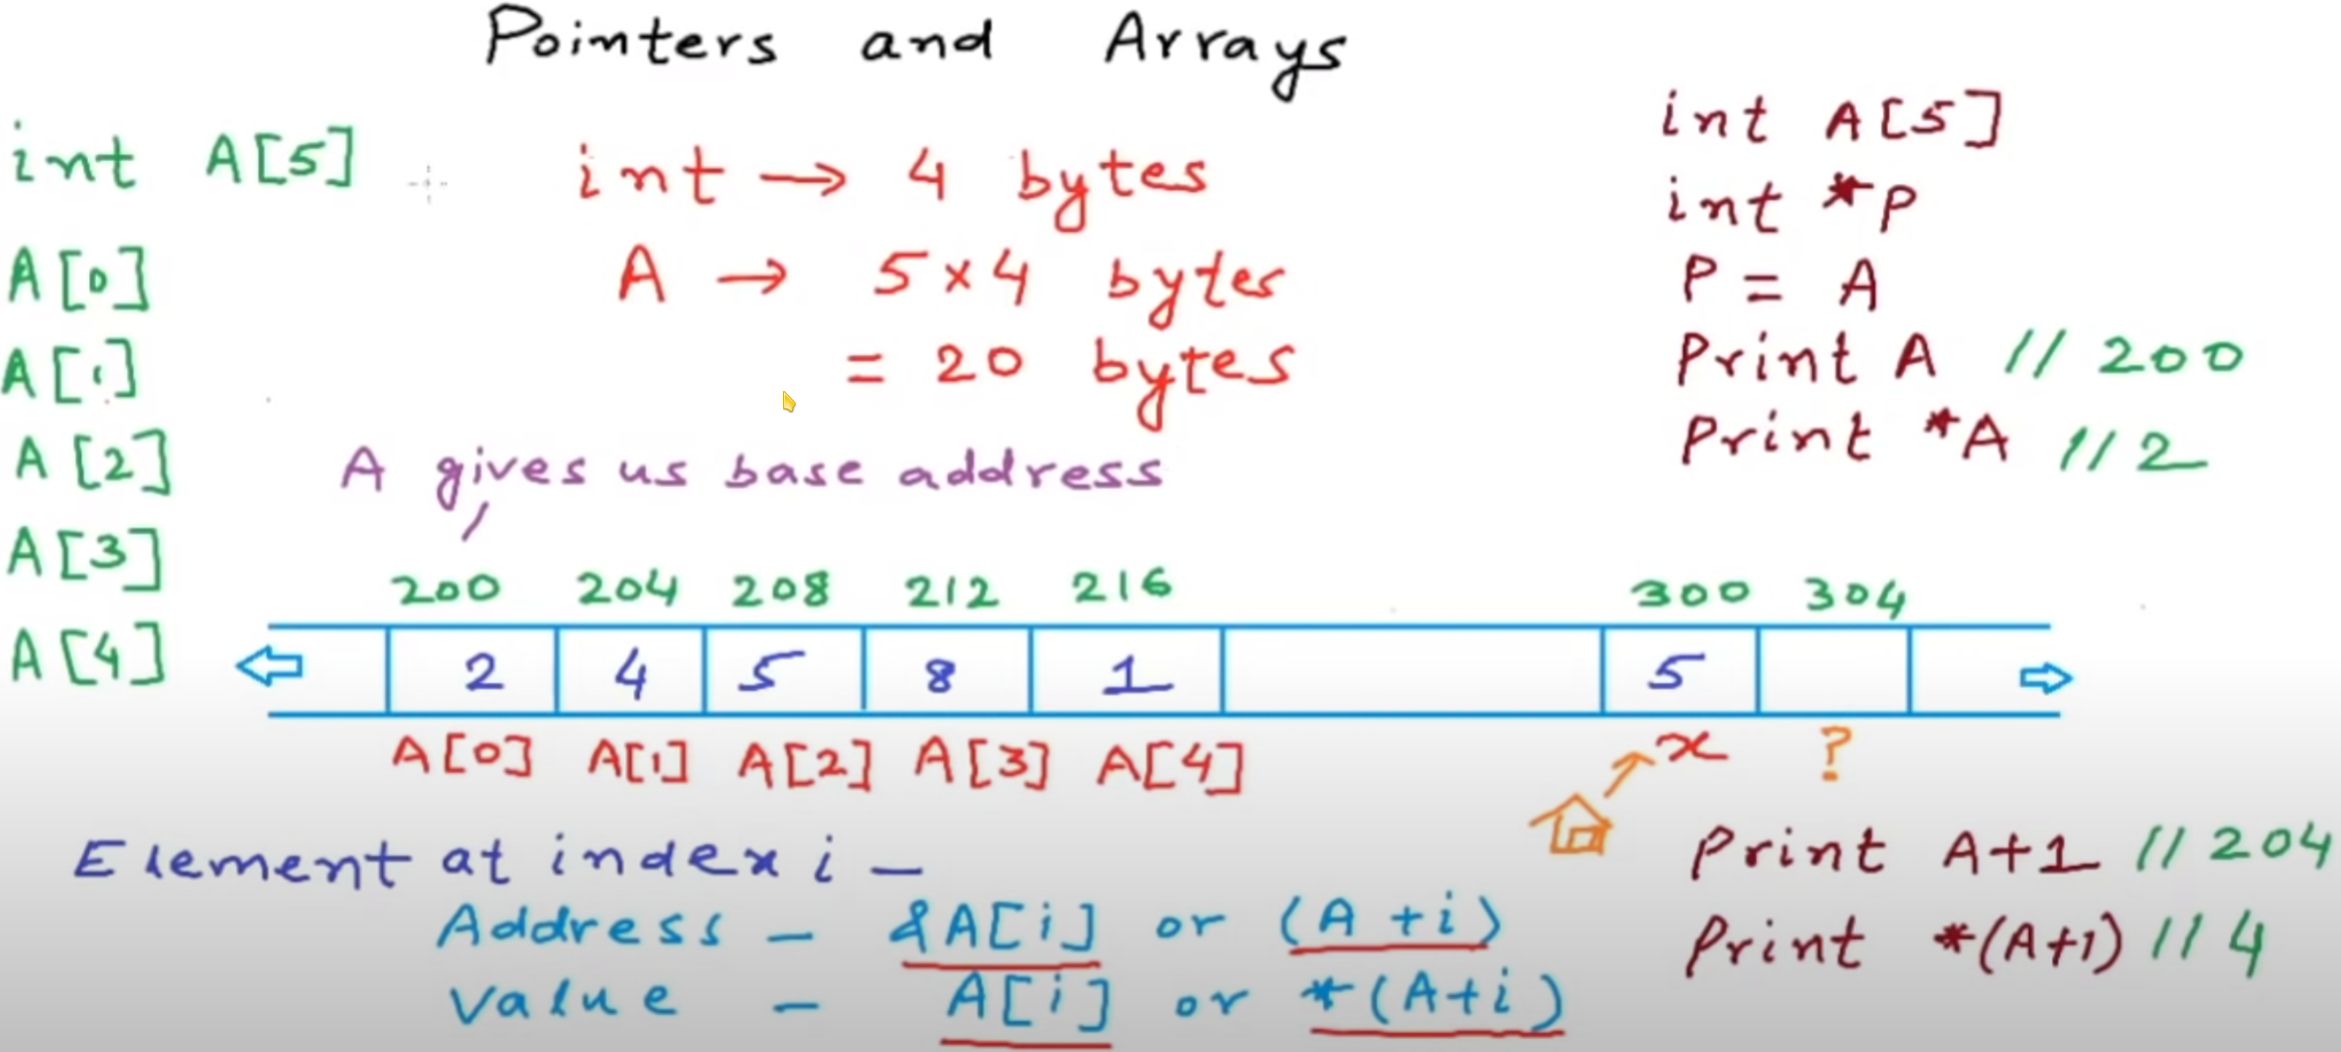 Pointers and Arrays
int A[5]
A[0]
A[1]
A[2]
A[3]
A[4]
int → 4 bytes
A → 5 × 4 bytes
= 20 bytes
A gives us base address
int A[5]
int *P
P = A
Print A // 200
Print *A // 2
200 204 208 212 216 300 304
2 4 5 8 1 5
A[0] A[1] A[2] A[3] A[4] x ?
Element at index i –
Address – &A[i] or (A + i)
Value – A[i] or *(A+i)
Print A+1 // 204
Print *(A+1) // 4